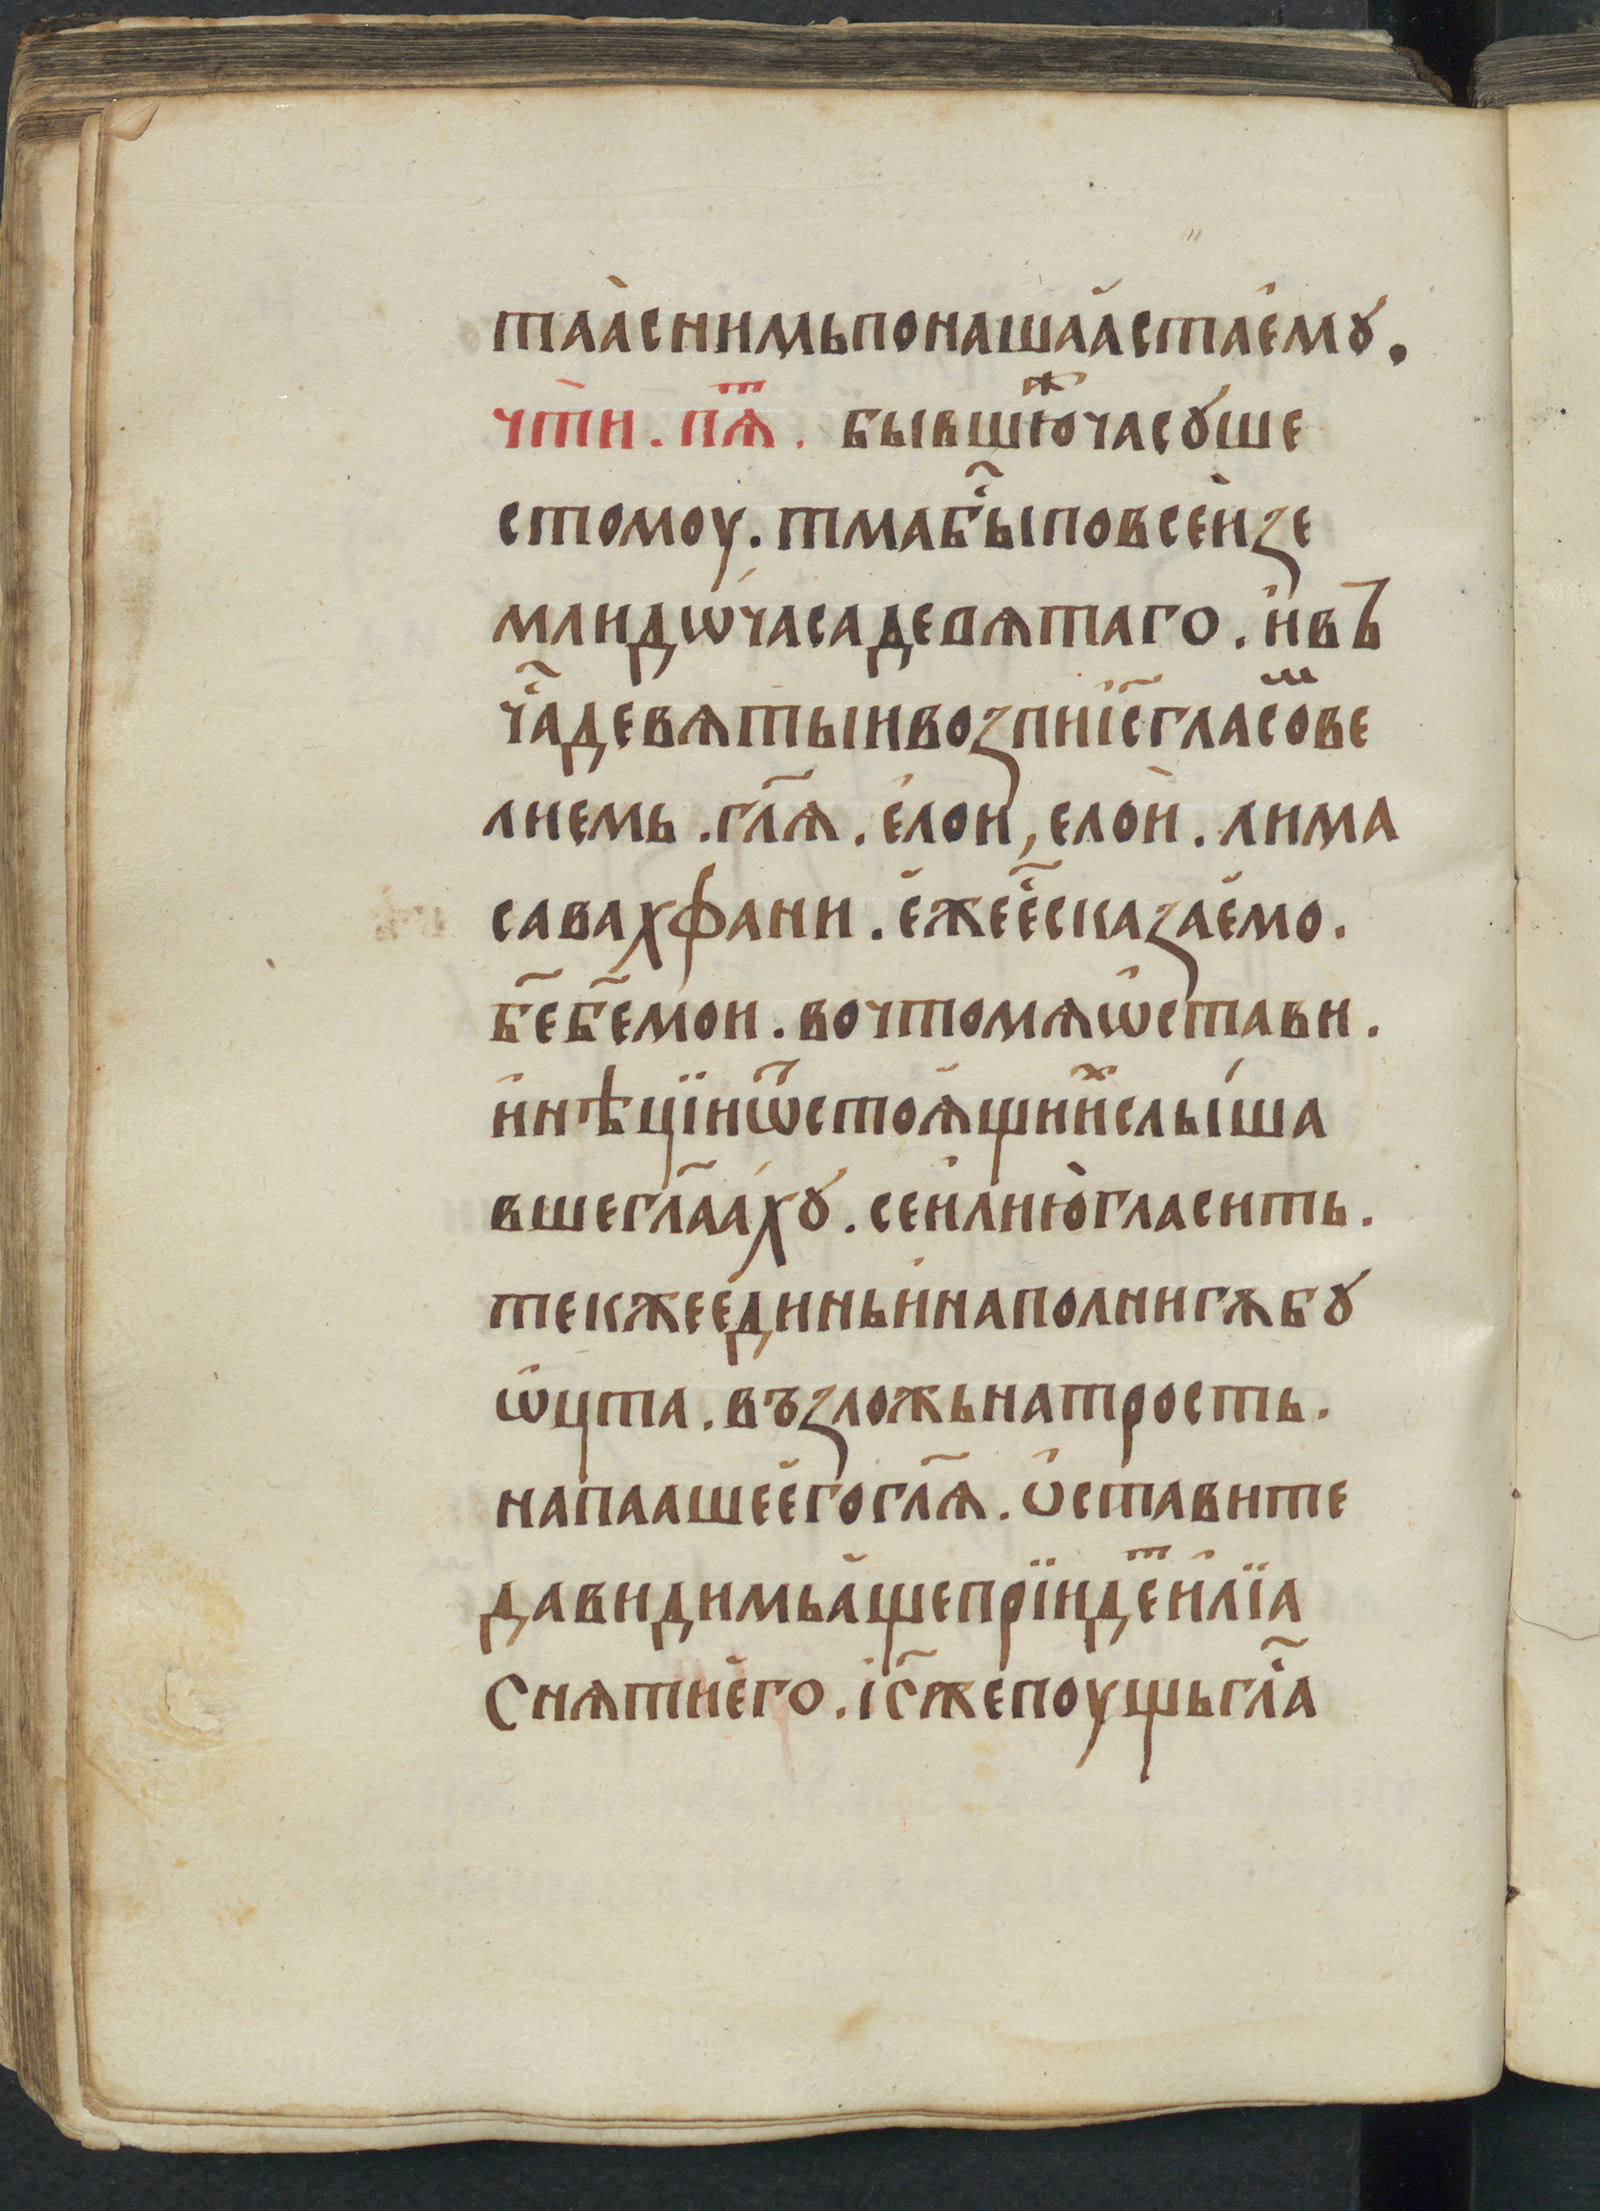 таа̀снимьпонашаа́стає́мꙋ.
чт̑и̇. пѧ̑ⷮ. бывшю̑ⷤчасꙋше
стомоу. тмабы̑повсеи̇зе
млидѡ́часадевѧтаго. и̇въ
ча̑девѧтыивозпиі̇с̃гласо̑ⷨве
лиемь. гл҃ѧ. є́лои, елои̇. лима
савахфани. є́жеє̑сказає́мо.
бе҃бе҃мои. вочтомѧѡ̇стави.
и̇нѣцїиѿстоѧ́щиⷯи̇слы́ша
вшегл҃аа́хꙋ. сеи̇лию̀гласить.
текжеє́диньи̇наполнигѫбꙋ
ѡ̇цта. възложьнатрость.
напаашеє́гогл҃ѧ. ѡ̇ставите
давидимьа́щепрїиде̑ⷮи̇лїа
Снѧтиє́го. і̇с҃жепоущьгл҃а